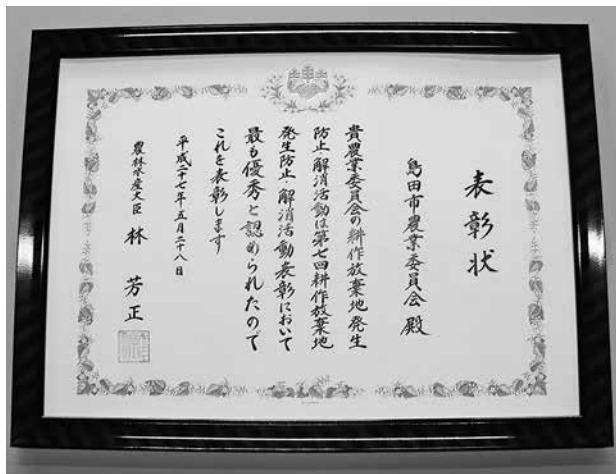 表彰状
島田市農業委員会殿
貴農業委員会の耕作放棄地発生
防止・解消活動は第七回耕作放棄地
発生防止・解消活動表彰において
最も優秀と認められたので
これを表彰します
平成二十七年五月二十八日
農林水産大臣 林 芳正